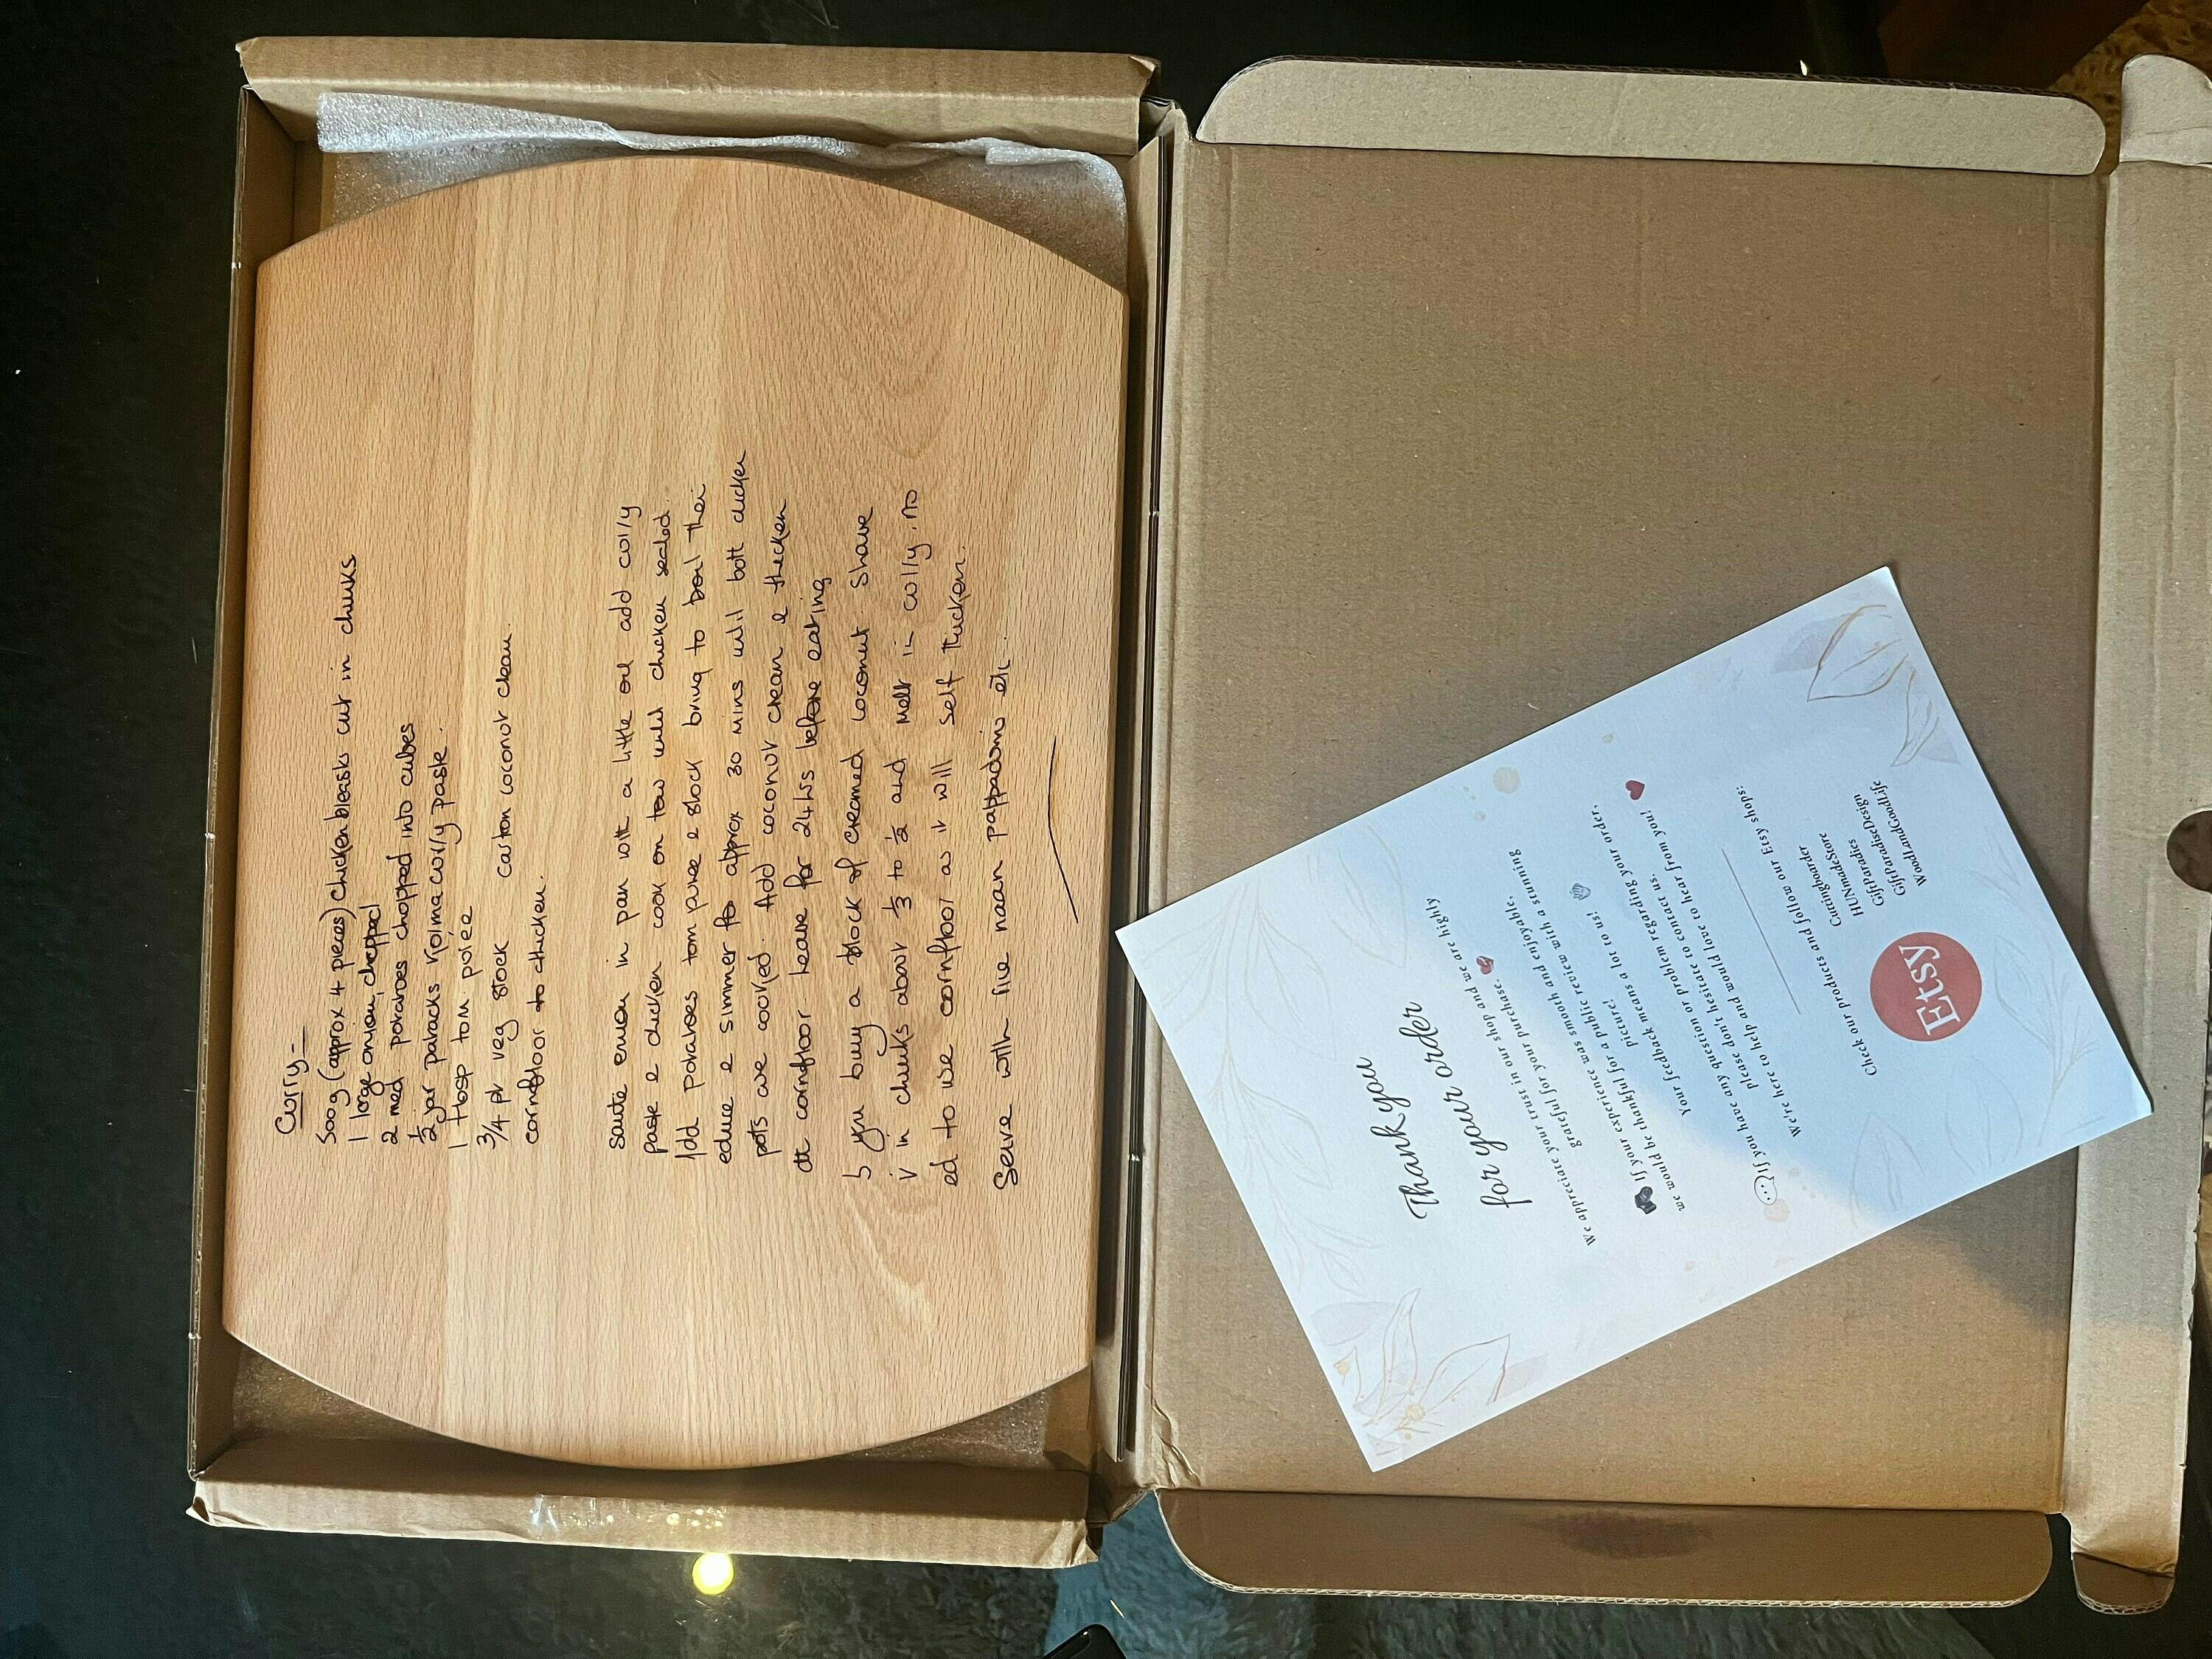 Curry -
500g (approx 4 pieces) chicken breasts cut in chunks
1 large onion, chopped
2 med potatoes chopped into cubes
½ jar pataks korma curry paste.
1 tbsp tom purée
3/4 pt veg stock carton coconut cream.
cornfloor to thicken.
Saute onion in pan with a little oil add curry
paste & chicken cook on low until chicken sealed.
Add potatoes tom puree & stock bring to boil then
educe & simmer for approx 30 mins until both chicken
pots are cooked. Add coconut cream & thicken
cornfloor Leave for 24hrs before eating
you buy a block of creamed coconut. Shave
in chunks about ⅓ to ½ and melt in curry, no
ed to use cornfloor as it will self thicken.
Serve with rice naan pappadoms etc.
Thank you
for your order
We appreciate your trust in our shop and we are highly
grateful for your purchase.
If your experience was smooth and enjoyable,
we would be thankful for a public review with a stunning
picture!
Your feedback means a lot to us!
If you have any question or problem regarding your order,
please don't hesitate to contact us.
We're here to help and would love to hear from you!
Check our products and follow our Etsy shops:
Etsy
Cuttingboarder
HUNmadeStore
GiftParadies
GiftParadiseDesign
WoodLandGoodLife